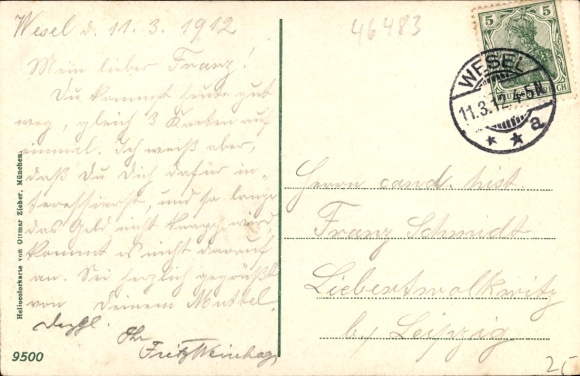 Wesel d. 11. 3. 1912
Mein lieber Franz!
Du kommst heute gut
weg, gleich 3 Karten auf
einmal. Ich weiß aber,
daß Du Dich dafür in-
teressierst, und so lange
das Geld nicht knapp wird,
kommt es nicht darauf
an. Sei herzlich gegrüßt
von Deinem
Fritz
46483
5 5
WESEL
11.3.12.4-5N.
* * a
Herrn cand. hist.
Franz Schmidt
Liebertwolkwitz
b/ Leipzig
Heliocolorkarte von Ottmar Zieher, München.
9500